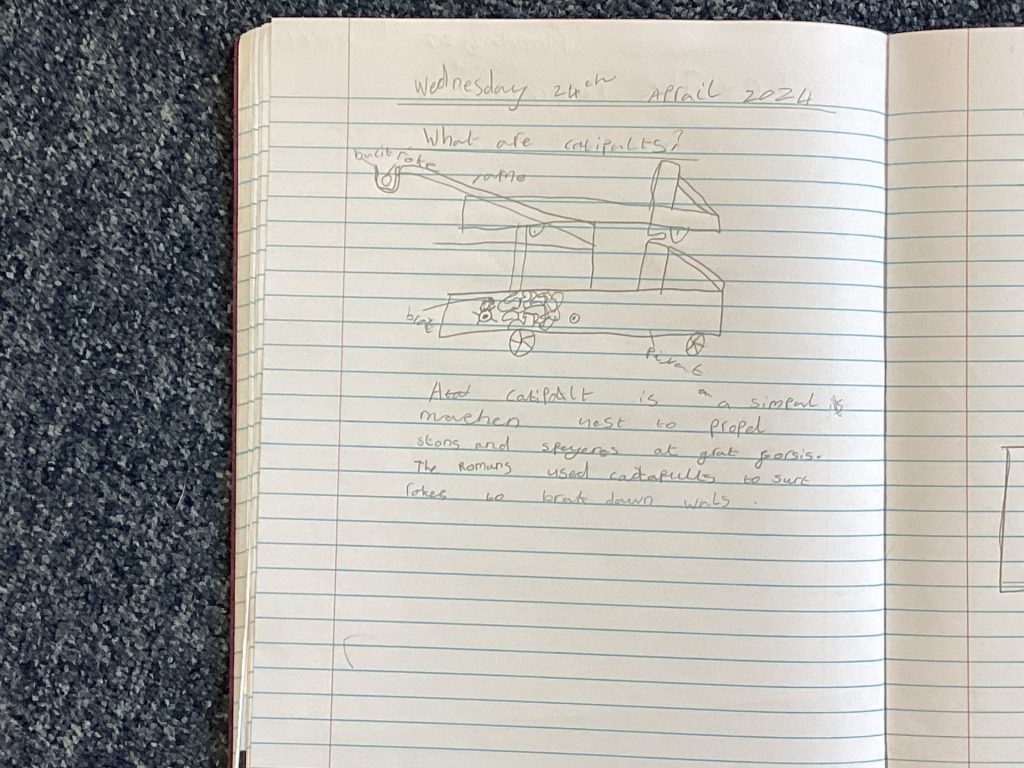 Wednesday 24th Aprail 2024
What are catipults?
bucit roke
brag
catipAlt is a a simpal
machen yest to propel
stons and speyeros at grat forsis.
The Romans used catapults to surt
rokes to brak down wals.